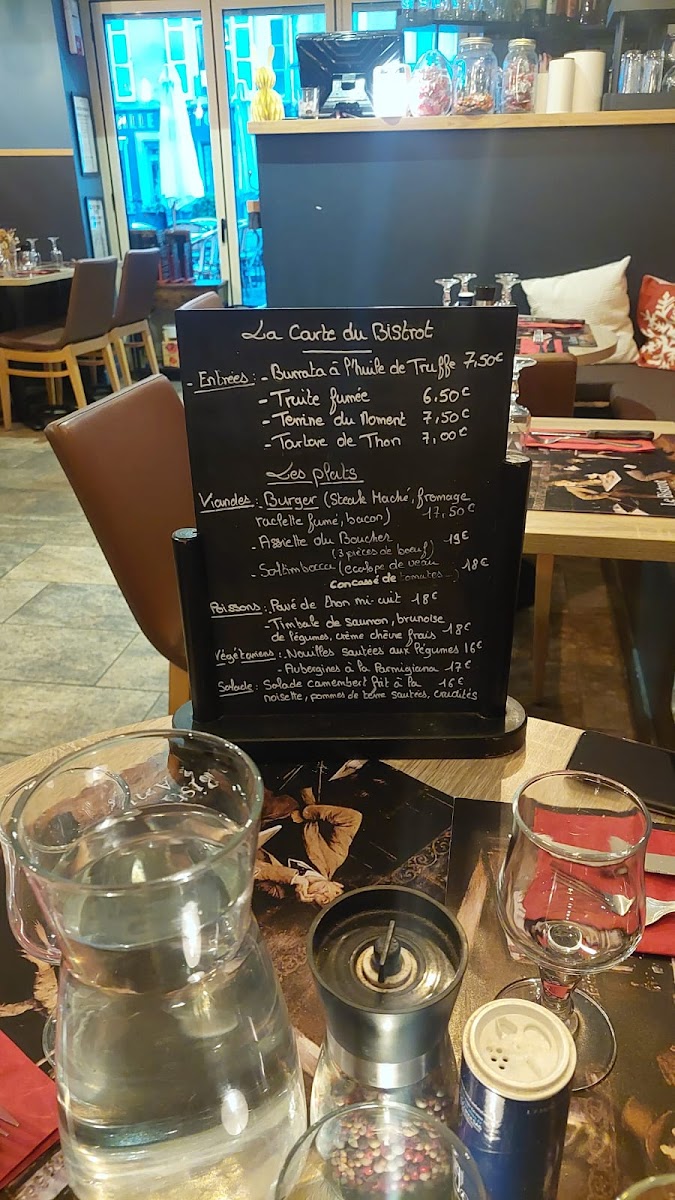 La Carte du Bistrot
- Entrées : - Burrata à l'huile de Truffe 7,50€
- Truite fumée 6.50€
- Terrine du Moment 7,50€
- Tartare de Thon 7,00€
Les plats
Viandes : Burger (Steak Haché, fromage
raclette fumé, bacon) 17,50€
- Assiette du Boucher 19€
(3 pièces de boeuf)
- Saltimbocca (écalope de veau 18€
concassé de tomates...)
Poissons : Pavé de thon mi-cuit 18€
- Timbale de saumon, brunoise
de légumes, crème chèvre frais 18€
Végétariens : Nouilles sautées aux légumes 16€
- Aubergines à la Parmigiana 17€
Salade : Salade camembert frit à la 16€
noisette, pommes de terre sautées, crudités
Le Bistrot